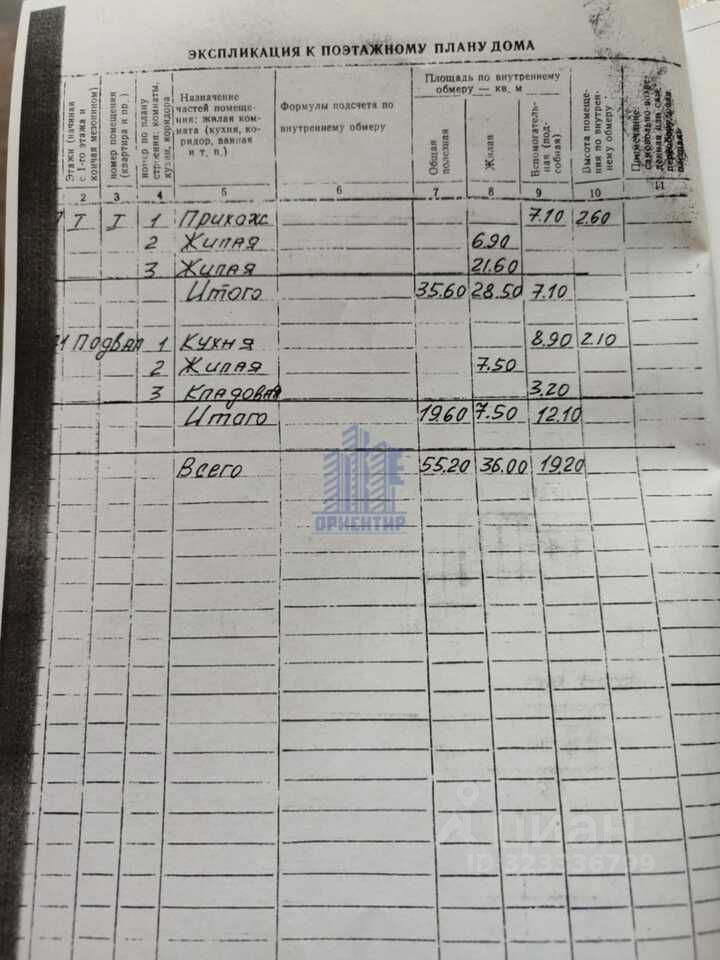 ЭКСПЛИКАЦИЯ К ПОЭТАЖНОМУ ПЛАНУ ДОМА
Этажи (начиная с 1-го этажа и кончая мезонином)
номер помещения (квартира и пр.)
номер по плану строения: комнаты, кухни, коридора
Назначение частей помещения: жилая комната (кухня, коридор, ванная и т. п.)
Формулы подсчета по внутреннему обмеру
Площадь по внутреннему обмеру — кв. м
Общая полезная
Жилая
Вспомогательная (подсобная)
Высота помещения по внутреннему обмеру
Примечание:
2 3 4 5 6 7 8 9 10 11
I I 1 Прихож 7.10 2.60
2 Жилая 6.90
3 Жилая 21.60
Итого 35.60 28.50 7.10
Подвал 1 Кухня 8.90 2.10
2 Жилая 7.50
3 Кладовая 3.20
Итого 19.60 7.50 12.10
Всего 55.20 36.00 19.20
ОРИЕНТИР
циан
ID 323336799